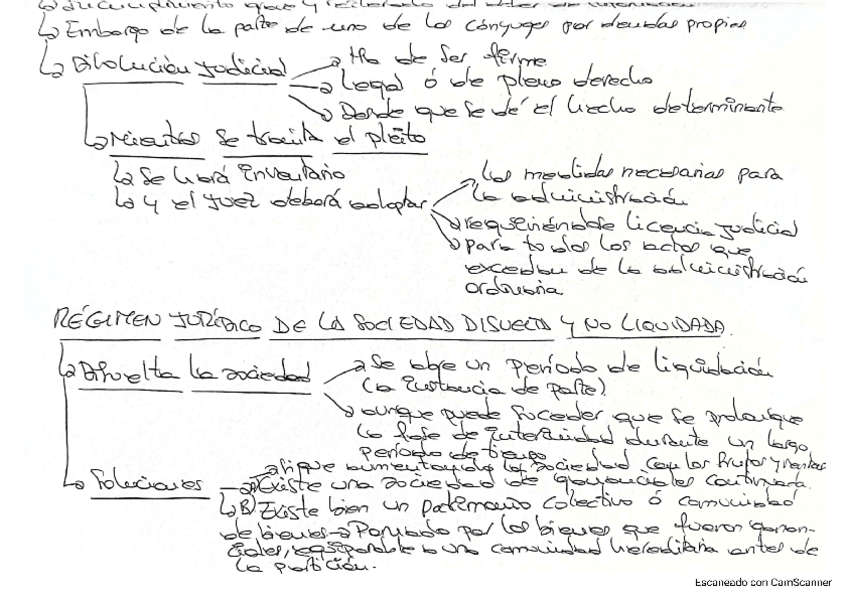 ↳ Embargo de la parte de uno de los cónyuges por deudas propias
↳ Disolución Judicial → Ha de ser firme
→ Legal ó de pleno derecho
→ Desde que se dé el hecho determinante
↳ Mientras se tramita el pleito
↳ Se hará Inventario
↳ y el Juez deberá adoptar → las medidas necesarias para
la administración
→ requiriéndose licencia Judicial
→ para todos los actos que
excedan de la administración
ordinaria.
RÉGIMEN JURÍDICO DE LA SOCIEDAD DISUELTA Y NO LIQUIDADA.
↳ Disuelta la sociedad → Se abre un período de liquidación
(a instancia de parte).
→ aunque puede suceder que se prolongue
la fase de interinidad durante un largo
período de tiempo
↳ Soluciones → sigue aumentando la sociedad con los frutos y rentas
Existe una sociedad de gananciales continuada.
↳ B) Existe bien un patrimonio colectivo ó comunidad
de bienes → Formado por los bienes que fueron ganan-
ciales, equiparable a una comunidad hereditaria antes de
la partición.
Escaneado con CamScanner